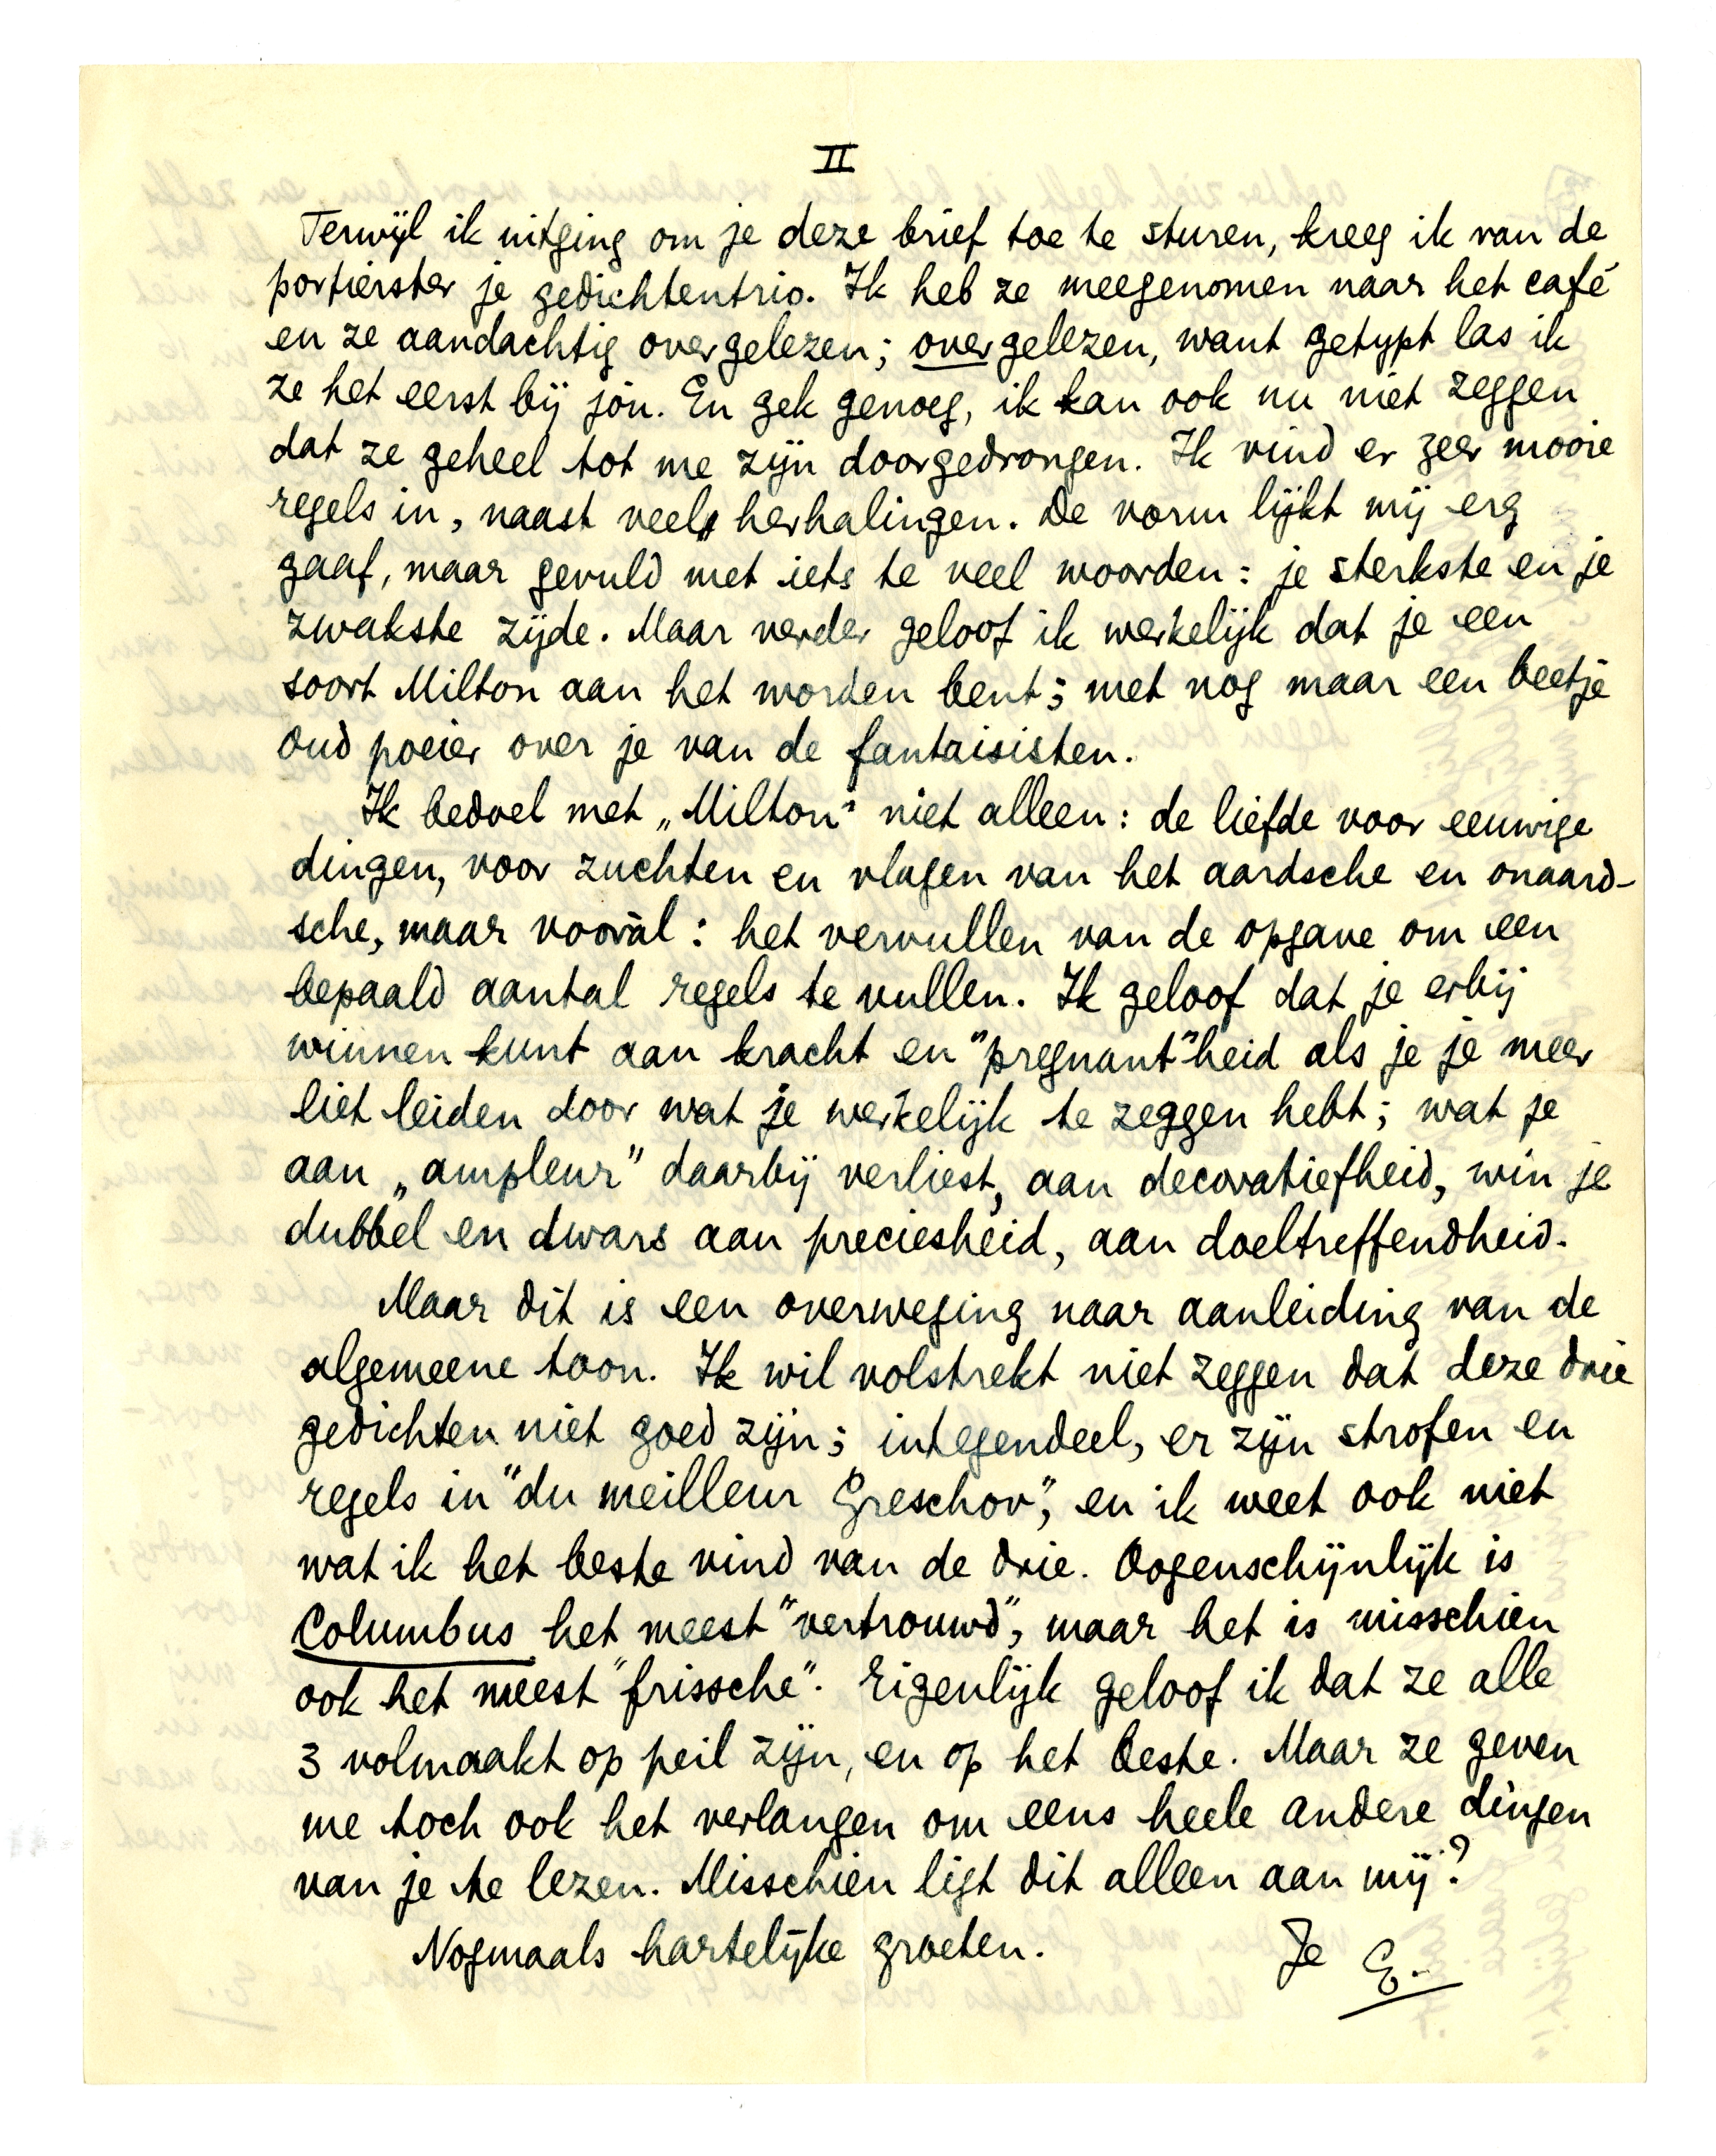 II
Terwijl ik uitging om je deze brief toe te sturen, kreeg ik van de
portierster je gedichtentrio. Ik heb ze meegenomen naar het café
en ze aandachtig overgelezen; overgelezen, want getypt las ik
ze het eerst bij jou. En gek genoeg, ik kan ook nu niet zeggen
dat ze geheel tot me zijn doorgedrongen. Ik vind er zeer mooie
regels in, naast veel herhalingen. De vorm lijkt mij erg
gaaf, maar gevuld met iets te veel woorden: je sterkste en je
zwakste zijde. Maar verder geloof ik werkelijk dat je een
soort Milton aan het worden bent; met nog maar een beetje
oud poeier over je van de fantaisisten.
Ik bedoel met „Milton" niet alleen: de liefde voor eeuwige
dingen, voor zuchten en vlagen van het aardsche en onaard-
sche, maar vooral: het vervullen van de opgave om een
bepaald aantal regels te vullen. Ik geloof dat je erbij
winnen kunt aan kracht en "pregnant"heid als je je meer
liet leiden door wat je werkelijk te zeggen hebt; wat je
aan „ampleur" daarbij verliest, aan decoratiefheid, win je
dubbel en dwars aan preciesheid, aan doeltreffendheid.
Maar dit is een overweging naar aanleiding van de
algemeene toon. Ik wil volstrekt niet zeggen dat deze drie
gedichten niet goed zijn; integendeel, er zijn strofen en
regels in "du meilleur Greschov", en ik weet ook niet
wat ik het beste vind van de drie. Oogenschijnlijk is
Columbus het meest "vertrouwd", maar het is misschien
ook het meest "frissche". Eigenlijk geloof ik dat ze alle
3 volmaakt op peil zijn, en op het beste. Maar ze geven
me toch ook het verlangen om eens heele andere dingen
van je te lezen. Misschien ligt dit alleen aan mij?
Nogmaals hartelijke groeten. Je E.